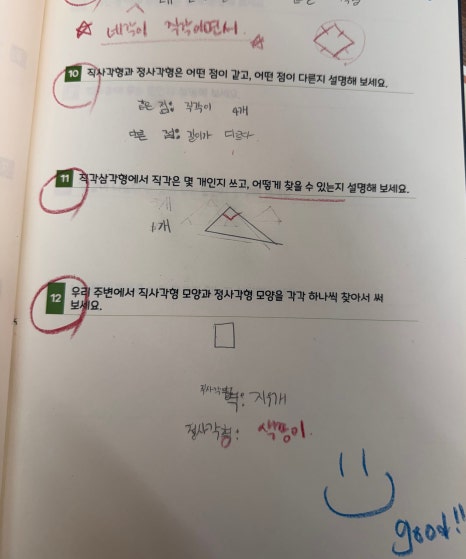 네각이 직각이면서.
10 직사각형과 정사각형은 어떤 점이 같고, 어떤 점이 다른지 설명해 보세요.
같은 점: 직각이 4개
다른 점: 길이가 다르다.
11 직각삼각형에서 직각은 몇 개인지 쓰고, 어떻게 찾을 수 있는지 설명해 보세요.
1개
12 우리 주변에서 직사각형 모양과 정사각형 모양을 각각 하나씩 찾아서 써
보세요.
직사각형: 지우개
정사각형: 색종이.
good!!